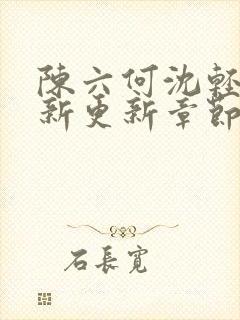 陳六何沈輕
新更新章節
石長寬